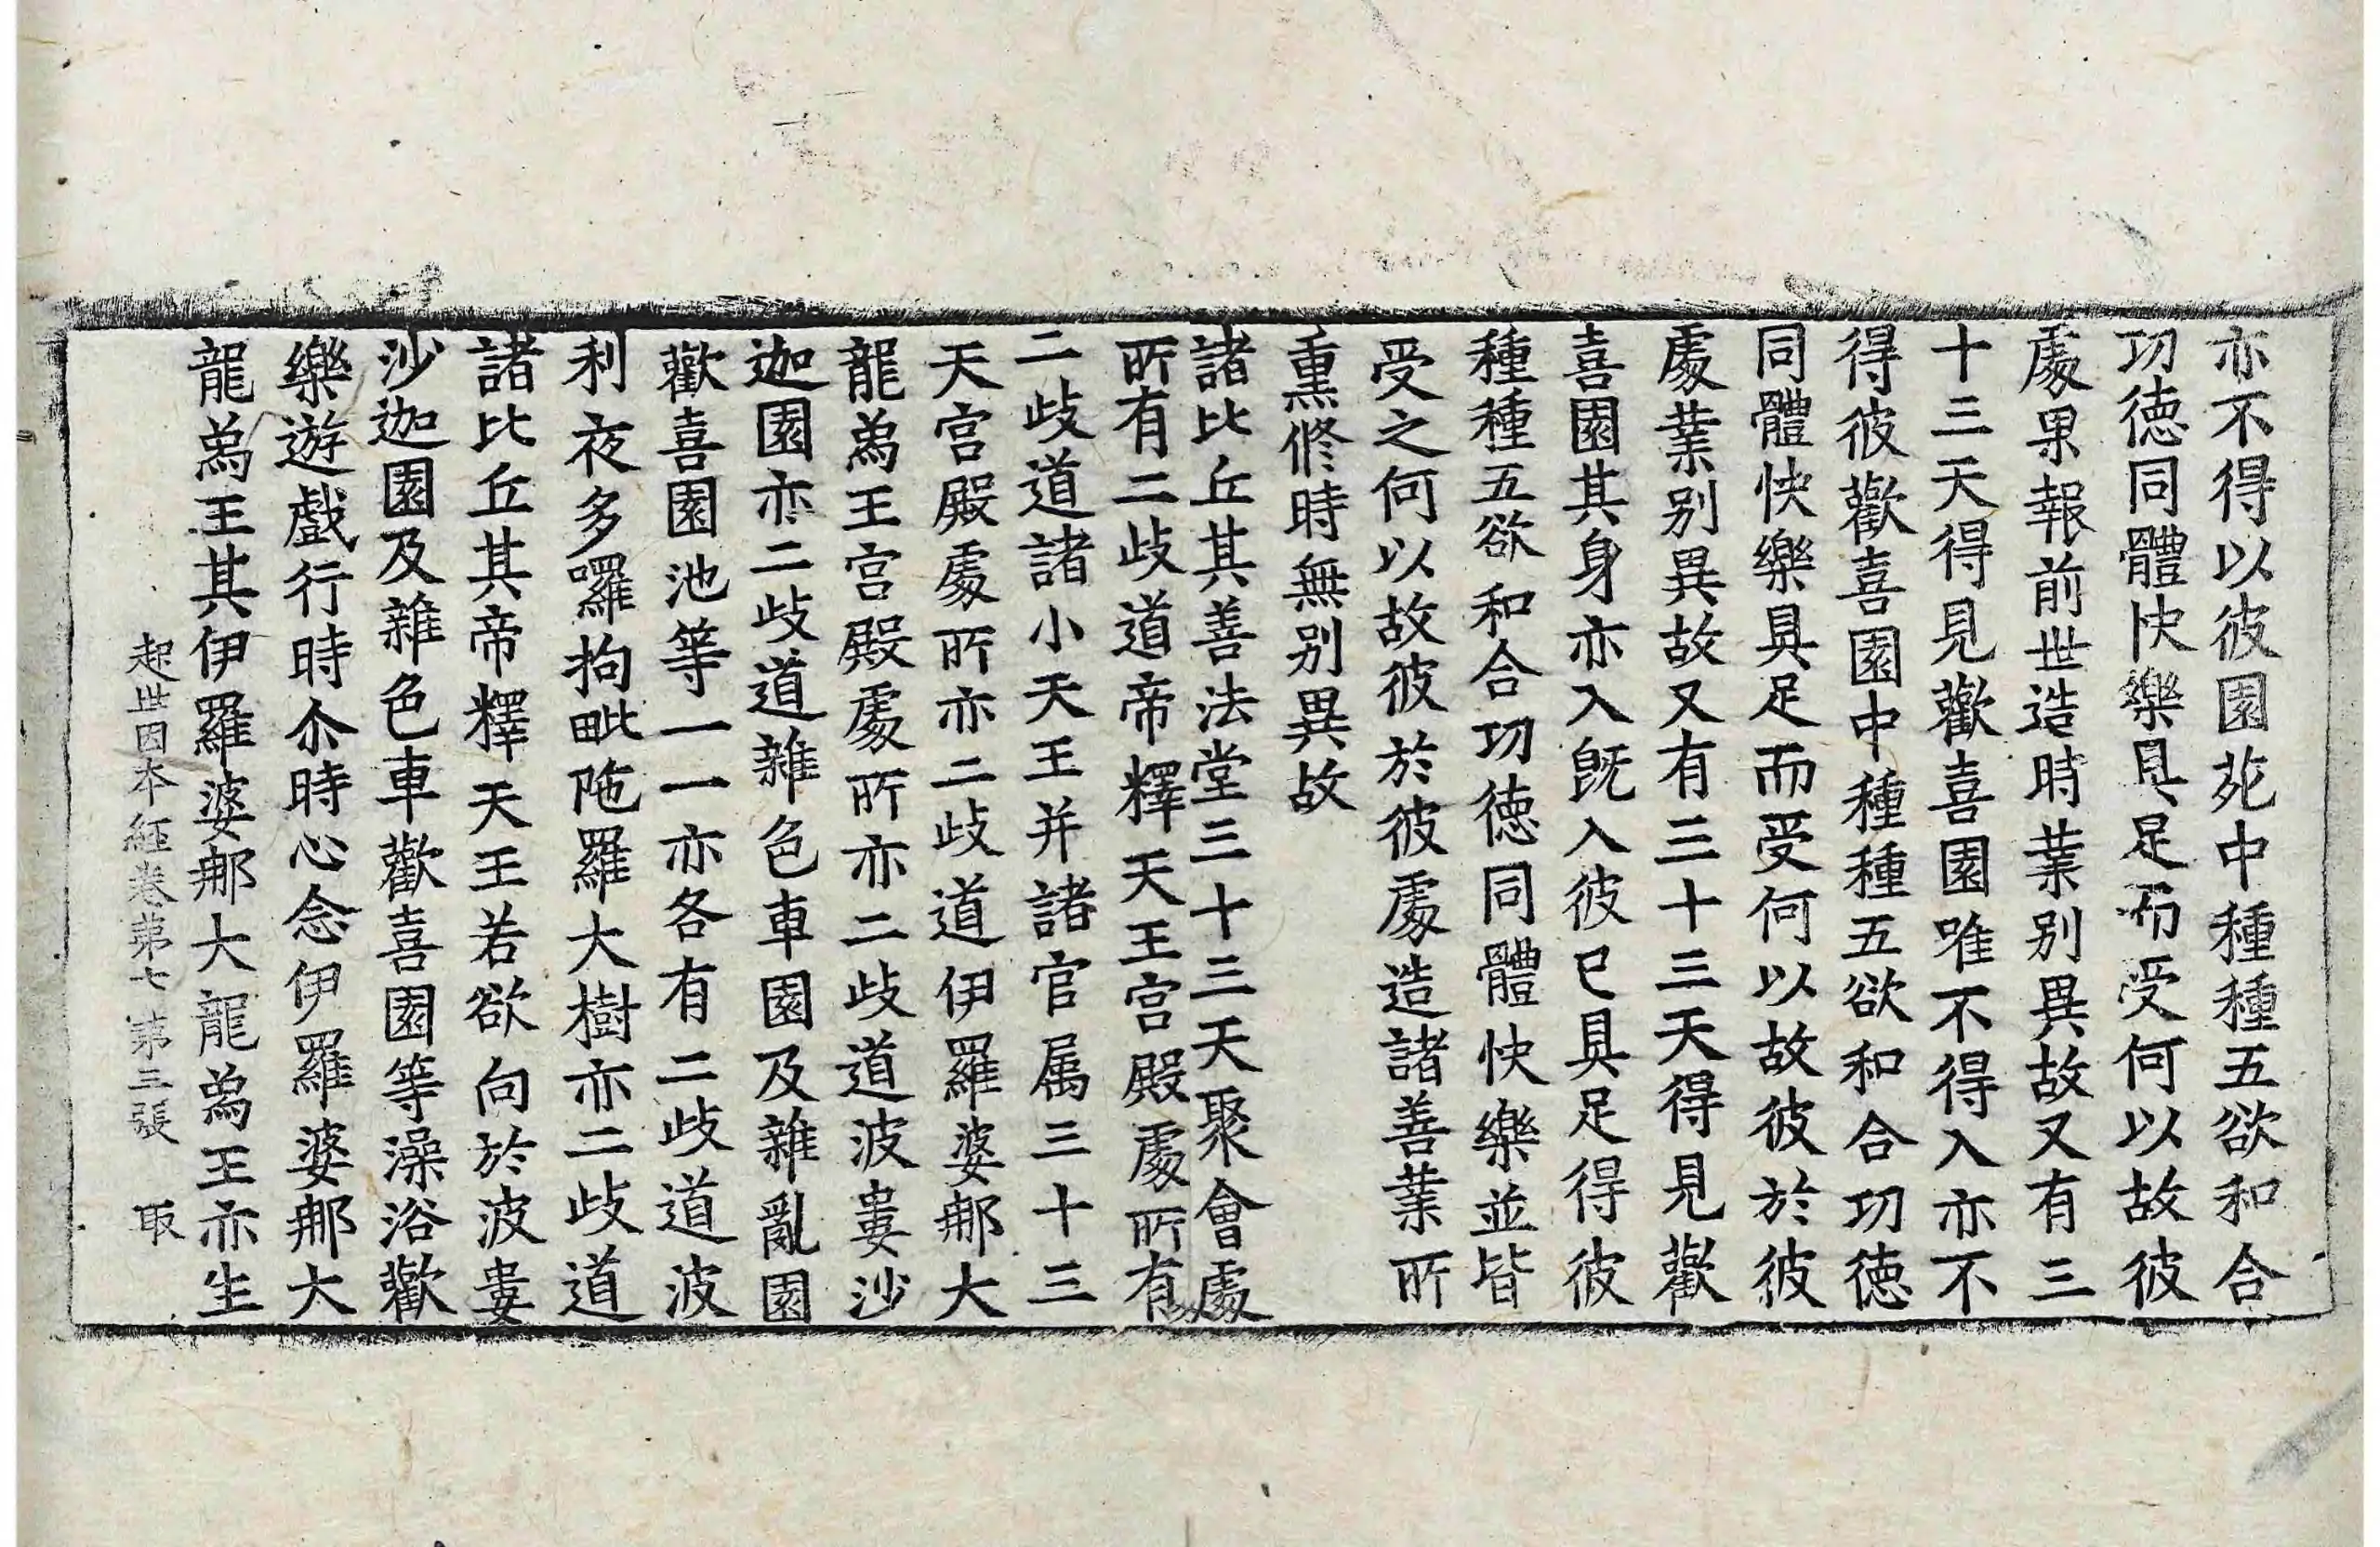 亦不得以彼園苑中種種五欲和合
功德同體快樂具足而受何以故彼
處果報前世造時業别異故又有三
十三天得見歡喜園唯不得入亦不
得彼歡喜園中種種五欲和合功德
同體快樂具足而受何以故彼於彼
處業别異故又有三十三天得見歡
喜園其身亦入旣入彼已具足得彼
種種五欲和合功德同體快樂並皆
受之何以故彼於彼處造諸善業所
熏修時無别異故
諸比丘其善法堂三十三天聚會處
所有二歧道帝釋天王宫殿處所有
二歧道諸小天王并諸官属三十三
天宫殿處所亦二歧道伊羅婆那大
龍爲王宫殿處所亦二歧道波婁沙
迦園亦二歧道雜色車園及雜亂園
歡喜園池等一一亦各有二歧道波
利夜多囉拘毗陁羅大樹亦二歧道
諸比丘其帝釋天王若欲向於波婁
沙迦園及雜色車歡喜園等澡浴歡
樂遊戲行時尒時心念伊羅婆那大
龍爲王其伊羅婆那大龍爲王亦生
起世因本經卷第七 第三張 取